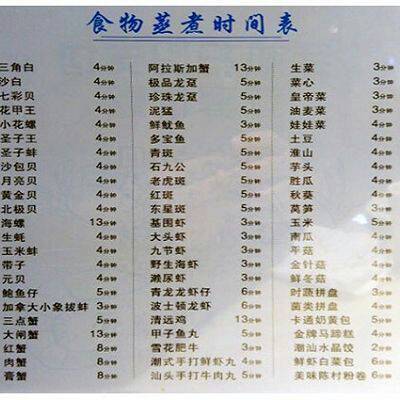 食物蒸煮时间表
三角白 4分钟
沙白 4分钟
七彩贝 4分钟
花甲王 4分钟
小花螺 4分钟
圣子王 4分钟
圣子蚌 4分钟
沙包贝 4分钟
月亮贝 4分钟
黄金贝 4分钟
北极贝 4分钟
海螺 13分钟
生蚝 4分钟
玉米蚌 4分钟
带子 4分钟
元贝 4分钟
鲍鱼仔 5分钟
加拿大小象拔蚌 3分钟
三点蟹 5分钟
大闸蟹 13分钟
红蟹 8分钟
肉蟹 8分钟
膏蟹 8分钟
阿拉斯加蟹 13分钟
极品龙趸 5分钟
珍珠龙趸 5分钟
泥猛 5分钟
鲜鱿鱼 5分钟
多宝鱼 5分钟
青斑 5分钟
石九公 5分钟
老虎斑 5分钟
红斑 5分钟
东星斑 5分钟
基围虾 3分钟
大头虾 3分钟
九节虾 3分钟
野生海虾 3分钟
濑尿虾 3分钟
青龙龙虾仔 6分钟
波士顿龙虾 6分钟
清远鸡 13分钟
甲子鱼丸 5分钟
雪花肥牛 3分钟
潮式手打鲜虾丸 4分钟
汕头手打牛肉丸 5分钟
生菜 3分钟
菜心 3分钟
皇帝菜 3分钟
油麦菜 3分钟
娃娃菜 3分钟
土豆 4分钟
淮山 4分钟
芋头 4分钟
胜瓜 4分钟
秋葵 4分钟
莴笋 3分钟
玉米 5分钟
南瓜 4分钟
平菇 4分钟
金针菇 4分钟
鲜冬菇 4分钟
时蔬拼盘 4分钟
菌类拼盘 4分钟
卡通奶黄包 5分钟
金牌马蹄糕 4分钟
潮汕水晶饺 6分钟
鲜虾白菜包 6分钟
美味陈村粉卷 6分钟